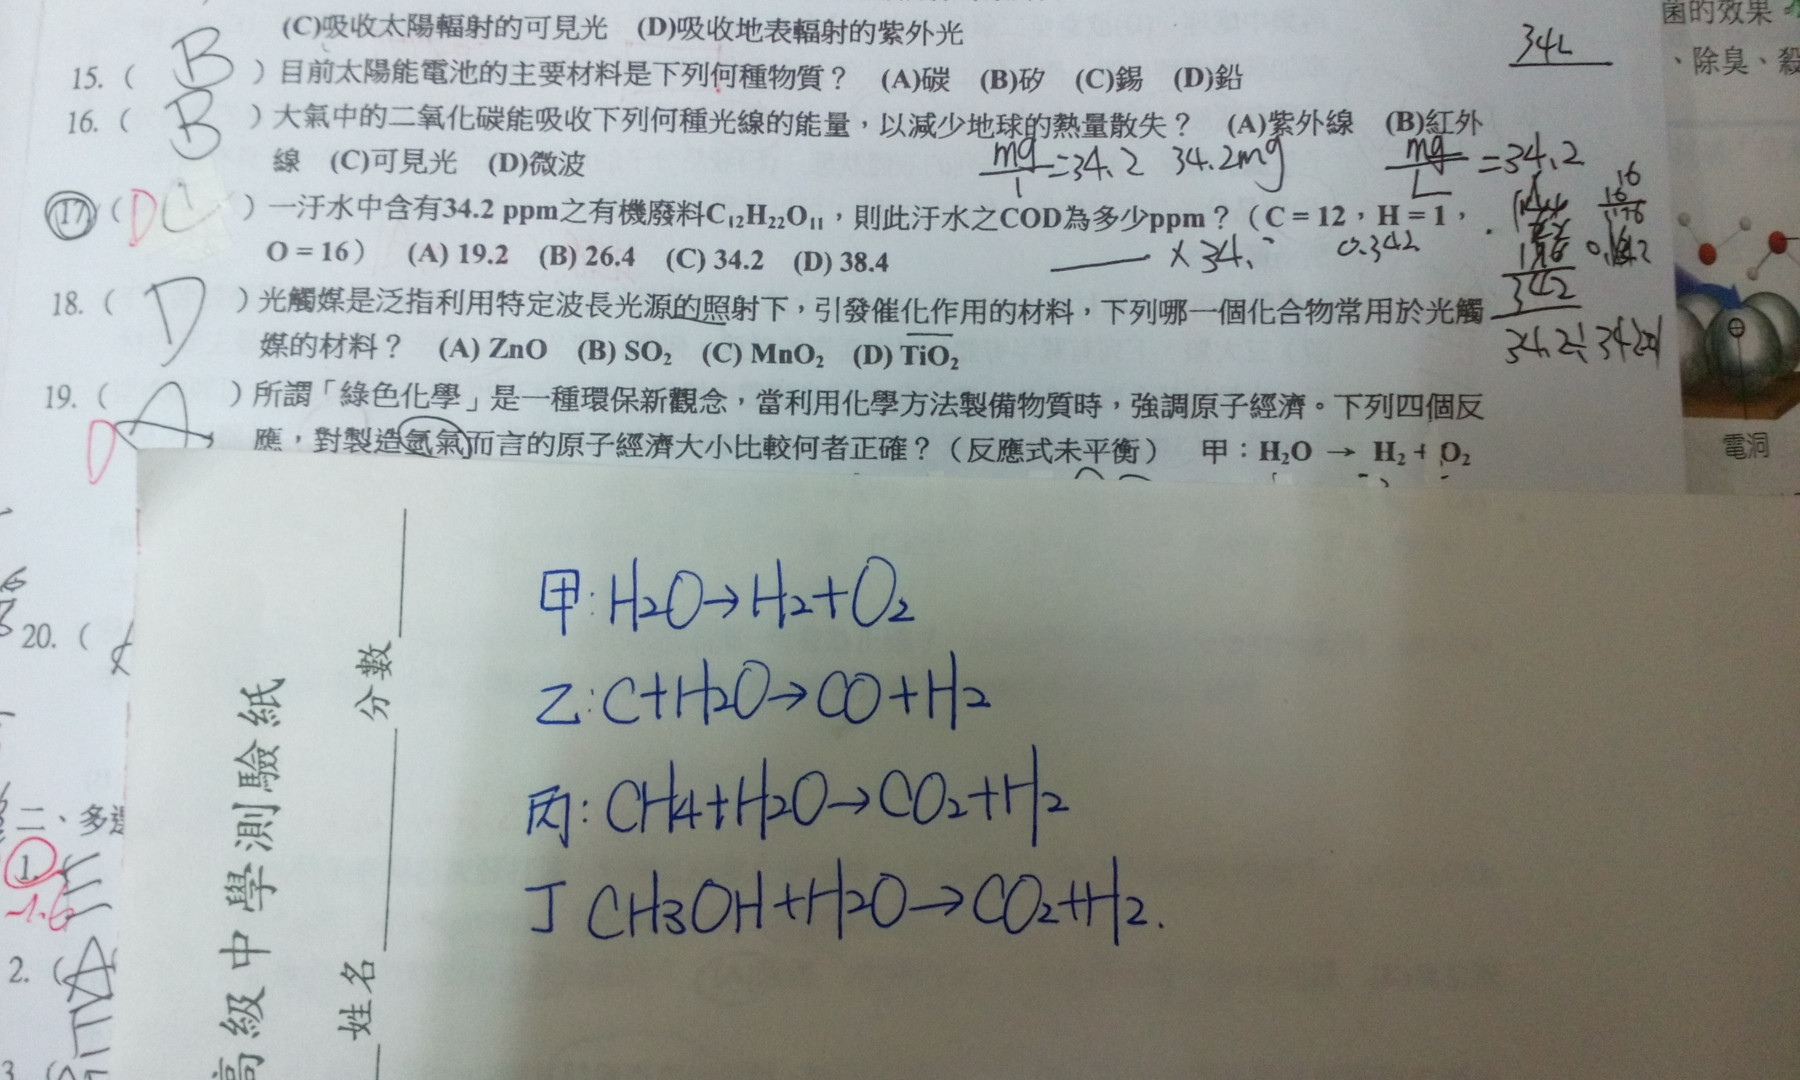 (C)吸收太陽輻射的可見光 (D)吸收地表輻射的紫外光
342
菌的效果
、除臭、殺
15. ( B ) 目前太陽能電池的主要材料是下列何種物質? (A)碳 (B)矽 (C)錫 (D)鉛
16. ( B ) 大氣中的二氧化碳能吸收下列何種光線的能量,以減少地球的熱量散失? (A)紫外線 (B)紅外
線 (C)可見光 (D)微波
mg/1 = 34.2 34.2mg
mg/L = 34.2
17. ( D C ) 一汙水中含有34.2 ppm之有機廢料C₁₂H₂₂O₁₁,則此汙水之COD為多少ppm?(C = 12,H = 1,
O = 16) (A) 19.2 (B) 26.4 (C) 34.2 (D) 38.4
× 34.
0.342
16
16
176
342
18. ( D ) 光觸媒是泛指利用特定波長光源的照射下,引發催化作用的材料,下列哪一個化合物常用於光觸
媒的材料? (A) ZnO (B) SO₂ (C) MnO₂ (D) TiO₂
19. ( A ) 所謂「綠色化學」是一種環保新觀念,當利用化學方法製備物質時,強調原子經濟。下列四個反
D
應,對製造氫氣而言的原子經濟大小比較何者正確?(反應式未平衡) 甲:H₂O → H₂ + O₂
電洞
甲:H2O→H2+O2
20. (
乙:C+H2O→CO+H2
丙:CH4+H2O→CO2+H2
丁 CH3OH+H2O→CO2+H2.
二、多選
1.
-1.6
2. (
3
高級中學測驗紙
姓名
分數